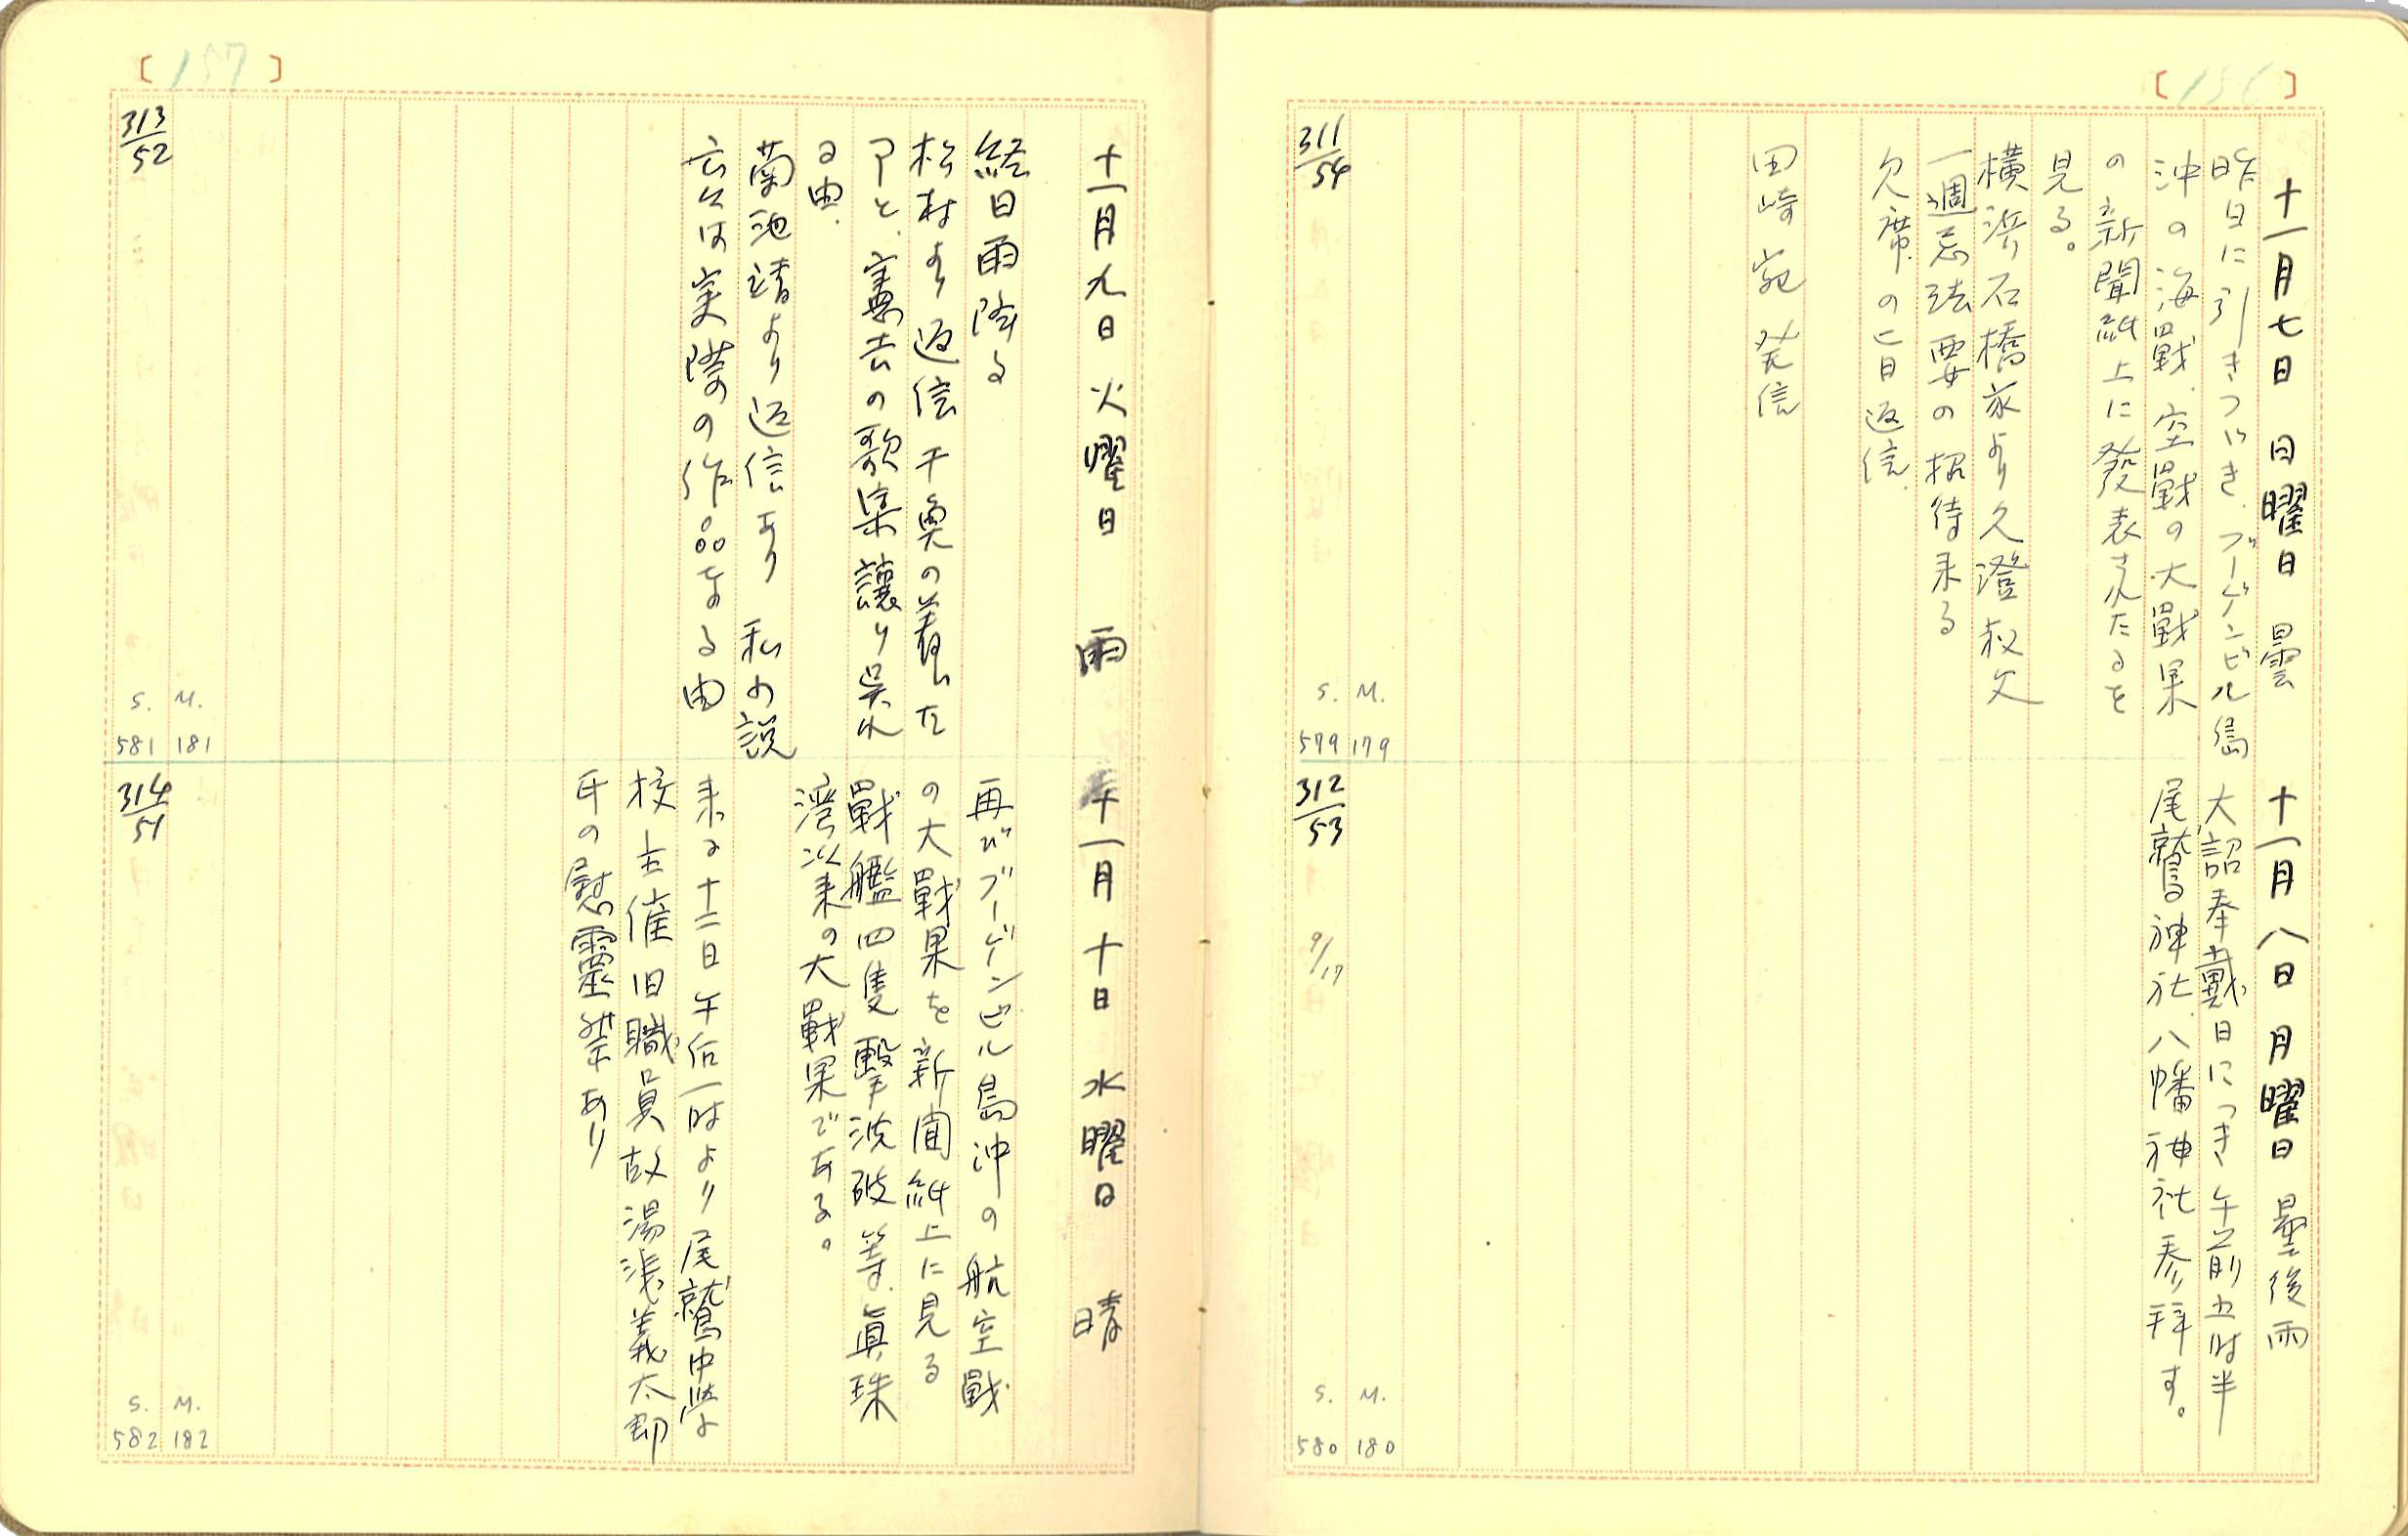 [156]
十一月七日 日曜日 曇
昨日に引きつゞき、ブーゲンビル島
沖の海戰、空戰の大戰果
の新聞紙上に發表されたるを
見る。
横浜石橋家より久澄叔父
一週忌法要の招待来る
欠席の旨返信.
田崎宛発信
311/54
S. M.
579 179
十一月八日 月曜日 曇後雨
大詔奉戴日につき午前五時半
尾鷲神社、八幡神社参拝す。
312/53
9/17
S. M.
580 180
[157]
十一月九日 火曜日 雨
終日雨降る
松村より返信 干奠の着した
事と、寡去の歌集譲り呉れ
る由.
菊池靖より返信あり 私の説
云々は実際の作品なる由
313/52
S. M.
581 181
十一月十日 水曜日 晴
再びブーゲンビル島沖の航空戰
の大戰果を新聞紙上に見る
戰艦四隻撃沈破等、眞珠
湾以来の大戰果である。
来る十二日午后一時より尾鷲中學
校主催旧職員故湯浅義太郎
氏の慰靈祭あり
314/51
S. M.
582 182